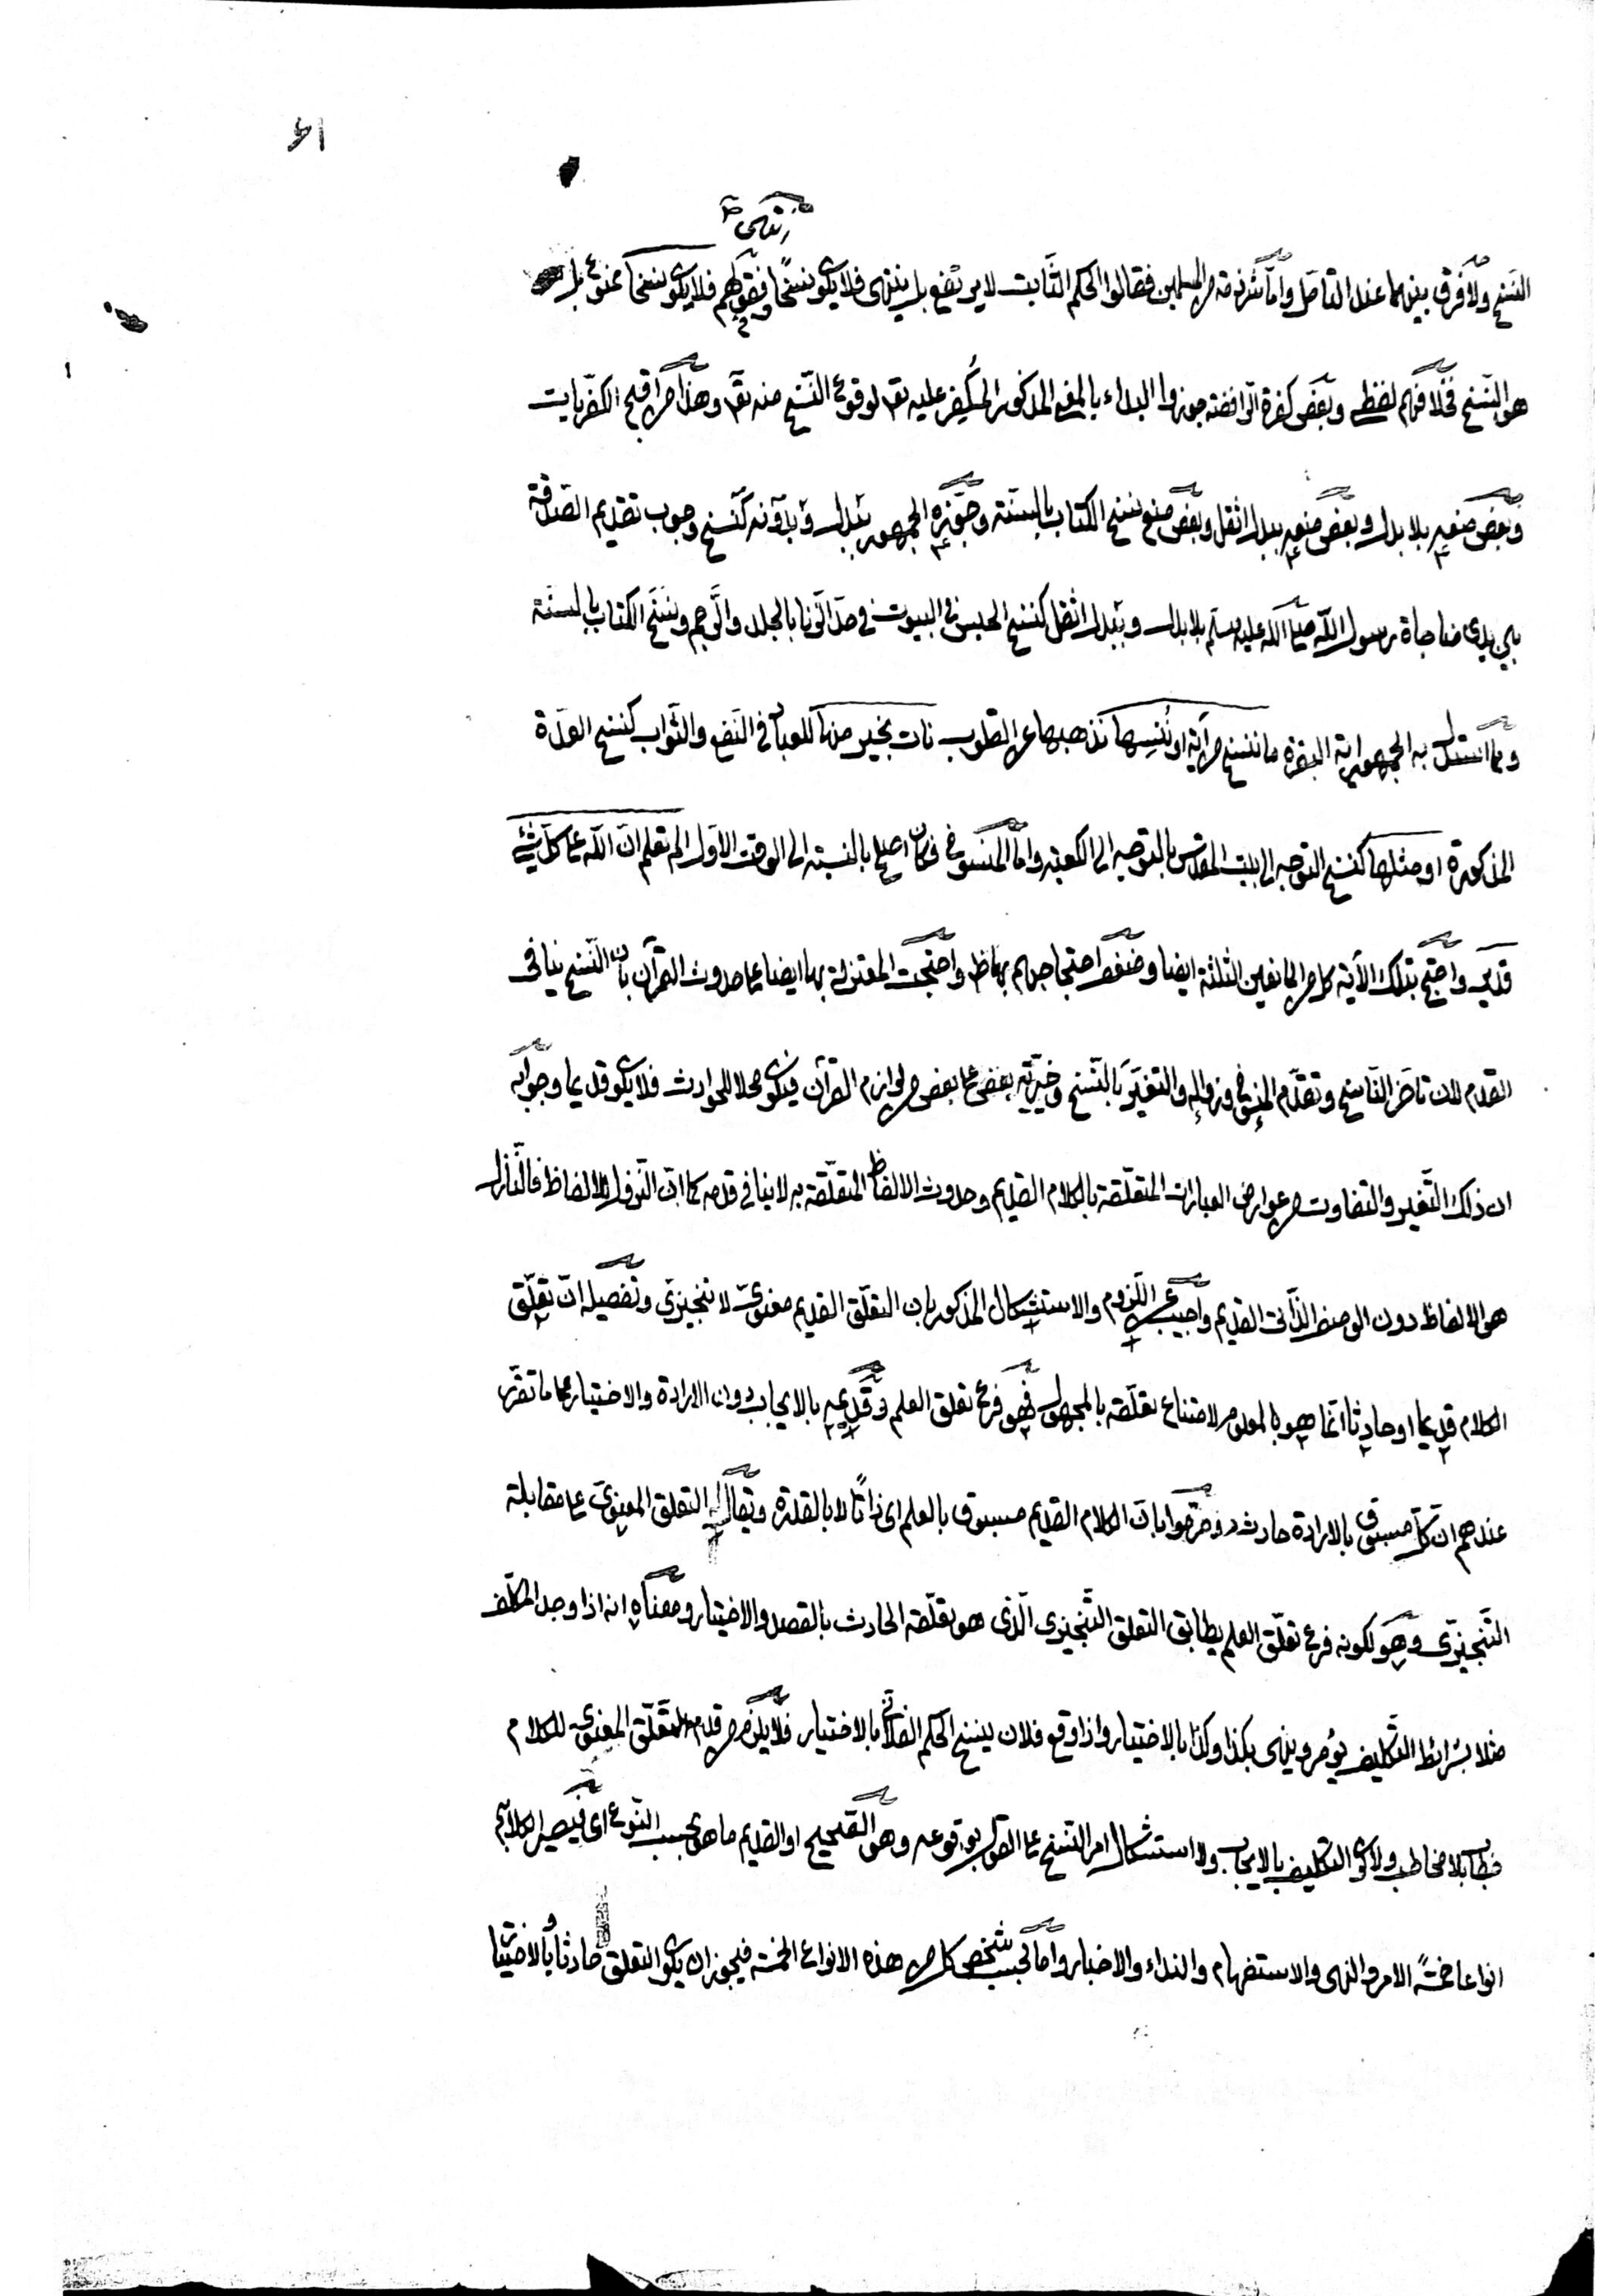 ٦١
انتهى صح
النسخ ولا فرق بينهما عند التأمل وأما شرذمة من المسلمين فقالوا الحكم الثابت لا يرتفع بل ينتهى فلا يكون نسخًا وقولهم فلا يكون نسخا ممنوع بل
هو النسخ فخلافهم لفظى وبعض كفرة الرافضة جوزوا البداء بالمعنى المذكور عليه تع لوقوع النسخ منه تع وهذا من اقبح الكفريات
وبعض منعه بلا بدل وبعض منعه ببدل اثقل وبعض منع نسخ الكتاب بالسنة وجوزه الجمهور ببدل وبدونه كنسخ وجوب تقديم الصدقة
بين يدى مناجاة رسول الله صلى الله عليه وسلم بلا بدل وببدل اثقل كنسخ الحبس فى البيوت فى حد الزنا بالجلد والرجم وبنسخ الكتاب بالسنة
ومما استدل به الجمهور اية البقرة ما ننسخ من آية او ننسها نذهبها عن القلوب نات بخير منها للعباد فى النفع والثواب كنسخ العدة
المذكورة او مثلها كنسخ التوجه الى بيت المقدس بالتوجه الى الكعبة واما المنسوخ فكان اصلح بالنسبة الى الوقت الاول الم تعلم ان الله على كل شئ
قدير واحتج بتلك الآية كل من المانعين الثلثة ايضا وضعف احتجاجهم بها ظ واحتجت المعتزلة بها ايضا على حدوث القرآن بان النسخ ينافى
القدم لان تاخر الناسخ وتقدم المنسوخ وزواله والتغير بالنسخ وخيرية بعض على بعض من لوازم القرآن فيكون محلا للحوادث فلا يكون قديما وجوابه
ان ذلك التغير والتفاوت من عوارض العبارات المتعلقة بالكلام القديم وحدوث الالفاظ المتعلقة به لا ينافى قدمه كما ان النزول للالفاظ فالنازل
هو الالفاظ دون الوصف الذاتى القديم واجيب عن اللزوم والاستشكال المذكور بان التعلق القديم معنوى لا تنجيزى وتفصيله ان تعلق
الكلام قديما او حادثا انما هو بالمعلوم لامتناع تعلقه بالمجهول فهو فرع تعلق العلم وقديمه بالايجاب دون الارادة والاختيار على ما تقرر
عندهم ان كل مسبوق بالارادة حادث وصرحوا بان الكلام القديم مسبوق بالعلم اى ذاتًا لا بالقدرة ويقال التعلق المعنوى على مقابلة
التنجيزى وهو لكونه فرع تعلق العلم يطابق التعلق التنجيزى الذى هو تعلقه الحادث بالقصد والاختيار ومعناه انه اذا وجد المكلف
مثلا بشرائط التكليف يؤمر وينهى بكذا وكذا بالاختيار واذا وقع فلان ينسخ الحكم الفلانى بالاختيار فلا يلزم من قدم التعلق المعنوى للكلام
خطاب بلا مخاطب ولا كون التكليف بالايجاب ولا استشكال امر النسخ على القول بوقوعه وهو الصحيح او القديم ما هو بحسب النوع اى فيصير الكلام
انواعا خمسةً الامر والنهى والاستفهام والنداء والاخبار واما بحسب شخص كل من هذه الانواع الخمسة فيجوز ان يكون التعلق حادثا وبالاختيار